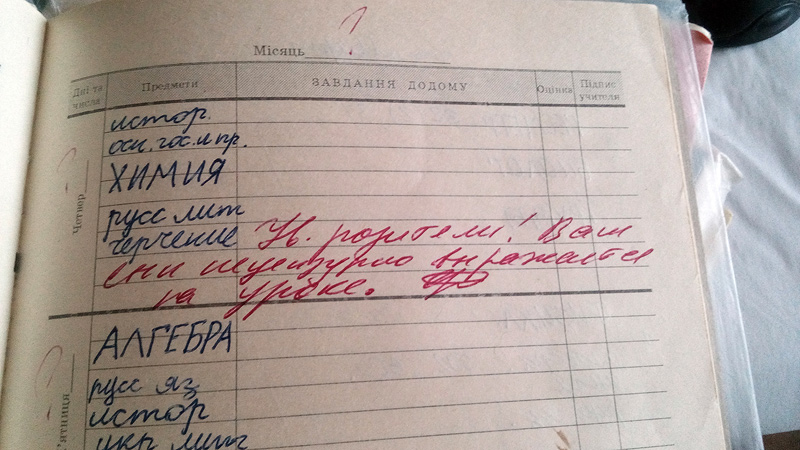 ?
Місяць
Дні та числа
Предмети
ЗАВДАННЯ ДОДОМУ
Оцінка
Підпис учителя
Четвер
?
истор.
осн. гос. и пр.
ХИМИЯ
русс лит
черчение
Ув. родители! Ваш
сын нецензурно выражается
на уроке.
?
АЛГЕБРА
русс яз
истор
укр лит